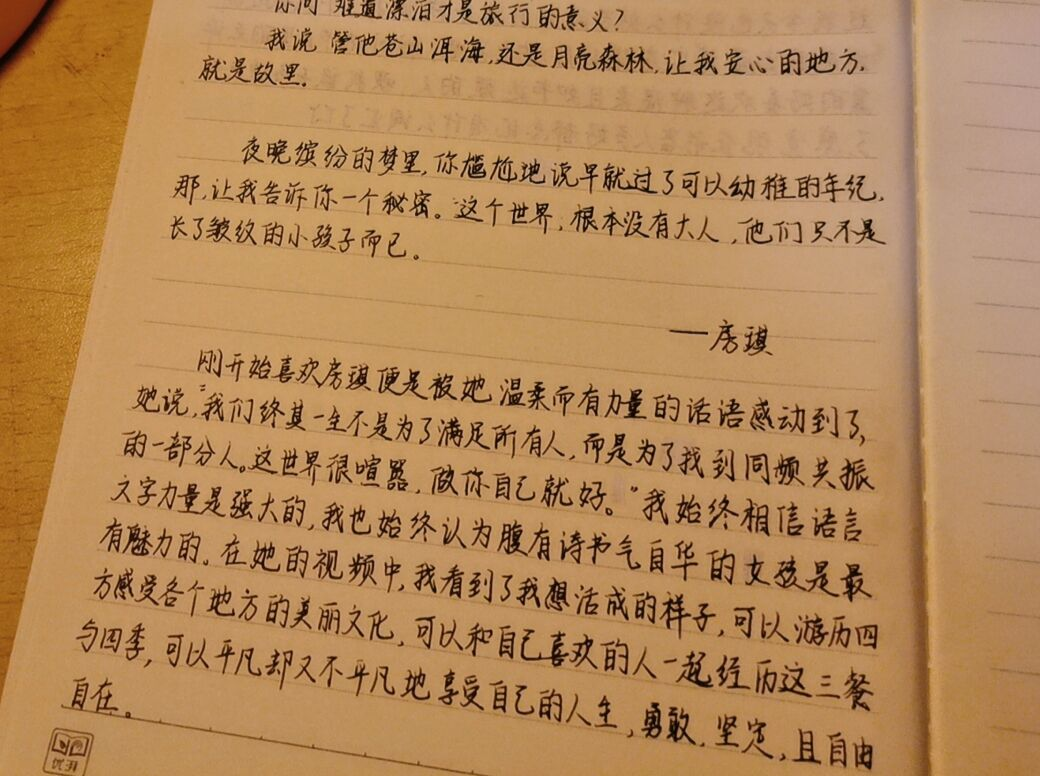 你问 难道漂泊才是旅行的意义?
我说 管他苍山洱海,还是月亮森林,让我安心的地方,
就是故里.
夜晚缤纷的梦里,你尴尬地说早就过了可以幼稚的年纪,
那,让我告诉你一个秘密。“这个世界,根本没有大人,他们只不是
长了皱纹的小孩子而已。
——房琪
刚开始喜欢房琪便是被她温柔而有力量的话语感动到了,
她说,“我们终其一生不是为了满足所有人,而是为了找到同频共振
的一部分人。这世界很喧嚣,做你自己就好。”我始终相信语言
文字力量是强大的,我也始终认为腹有诗书气自华的女孩是最
有魅力的。在她的视频中,我看到了我想活成的样子,可以游历四
方感受各个地方的美丽文化,可以和自己喜欢的人一起经历这三餐
与四季,可以平凡却又不平凡地享受自己的人生,勇敢,坚定,且自由
自在。
优升